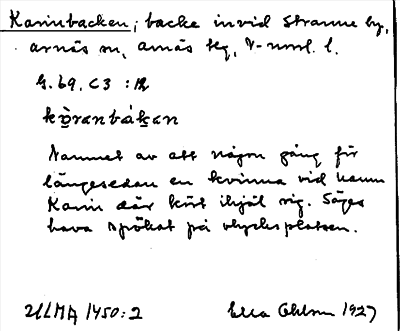 Karinbacken; backe invid Stranne by,
Arnäs sn, Arnäs tg, V-norrl. l.
G. 69. C3 : 
kạ̈ranbákan
Namnet av att någon gång för
längesedan en kvinna vid namn
Karin där kört ihjäl sig. Säges
hava spökat på olycksplatsen.
ULMA 1450:2 Ella Ohlson 1927